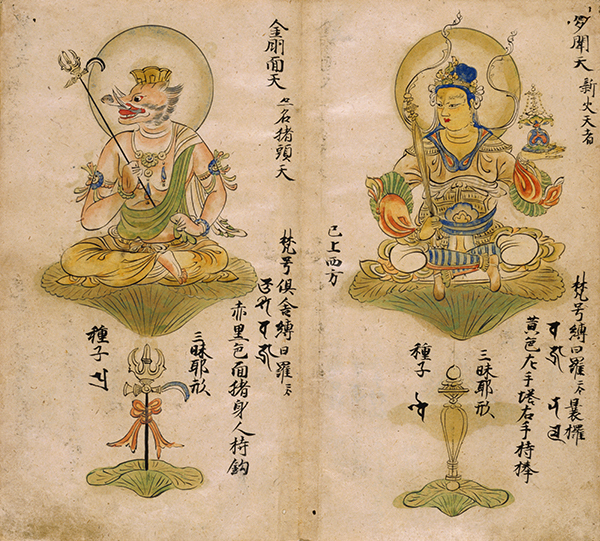 聞天 新火天者
梵号縛日羅二合
黄色左手塔右手持棒
三昧耶形
種子
已上西方
金剛面天 亦名猪頭天
梵号俱舍縛日羅二合
赤黒色面猪身人持鈎
三昧耶形
種子